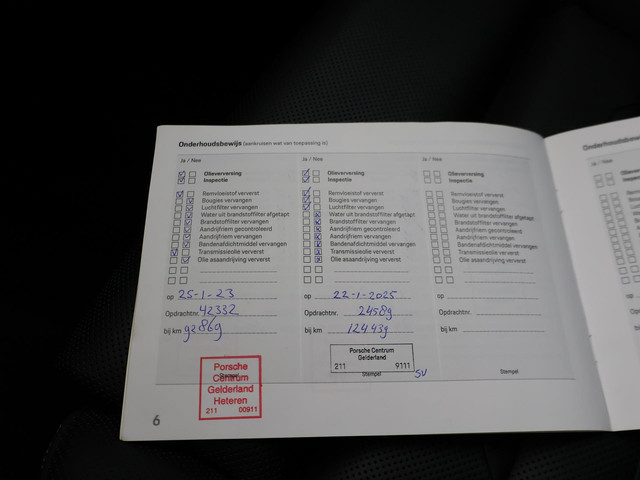 Onderhoudsbewijs (aankruisen wat van toepassing is)
Onderhoudsbew
Ja / Nee
Olieverversing
Inspectie
Remvloeistof ververst
Bougies vervangen
Luchtfilter vervangen
Water uit brandstoffilter afgetapt
Brandstoffilter vervangen
Aandrijfriem gecontroleerd
Aandrijfriem vervangen
Bandenafdichtmiddel vervangen
Transmissieolie ververst
Olie asaandrijving ververst
op 25-1-23
Opdrachtnr. 42332
bij km 92869
Stempel
Porsche
Centrum
Gelderland
Heteren
211 00911
Ja / Nee
Olieverversing
Inspectie
Remvloeistof ververst
Bougies vervangen
Luchtfilter vervangen
Water uit brandstoffilter afgetapt
Brandstoffilter vervangen
Aandrijfriem gecontroleerd
Aandrijfriem vervangen
Bandenafdichtmiddel vervangen
Transmissieolie ververst
Olie asaandrijving ververst
op 22-1-2025
Opdrachtnr. 24589
bij km 124439
Porsche Centrum
Gelderland
211 9111
Stempel
SV
Ja / Nee
Olieverversing
Inspectie
Remvloeistof ververst
Bougies vervangen
Luchtfilter vervangen
Water uit brandstoffilter afgetapt
Brandstoffilter vervangen
Aandrijfriem gecontroleerd
Aandrijfriem vervangen
Bandenafdichtmiddel vervangen
Transmissieolie ververst
Olie asaandrijving ververst
op
Opdrachtnr.
bij km
Stempel
Ja / Nee
6